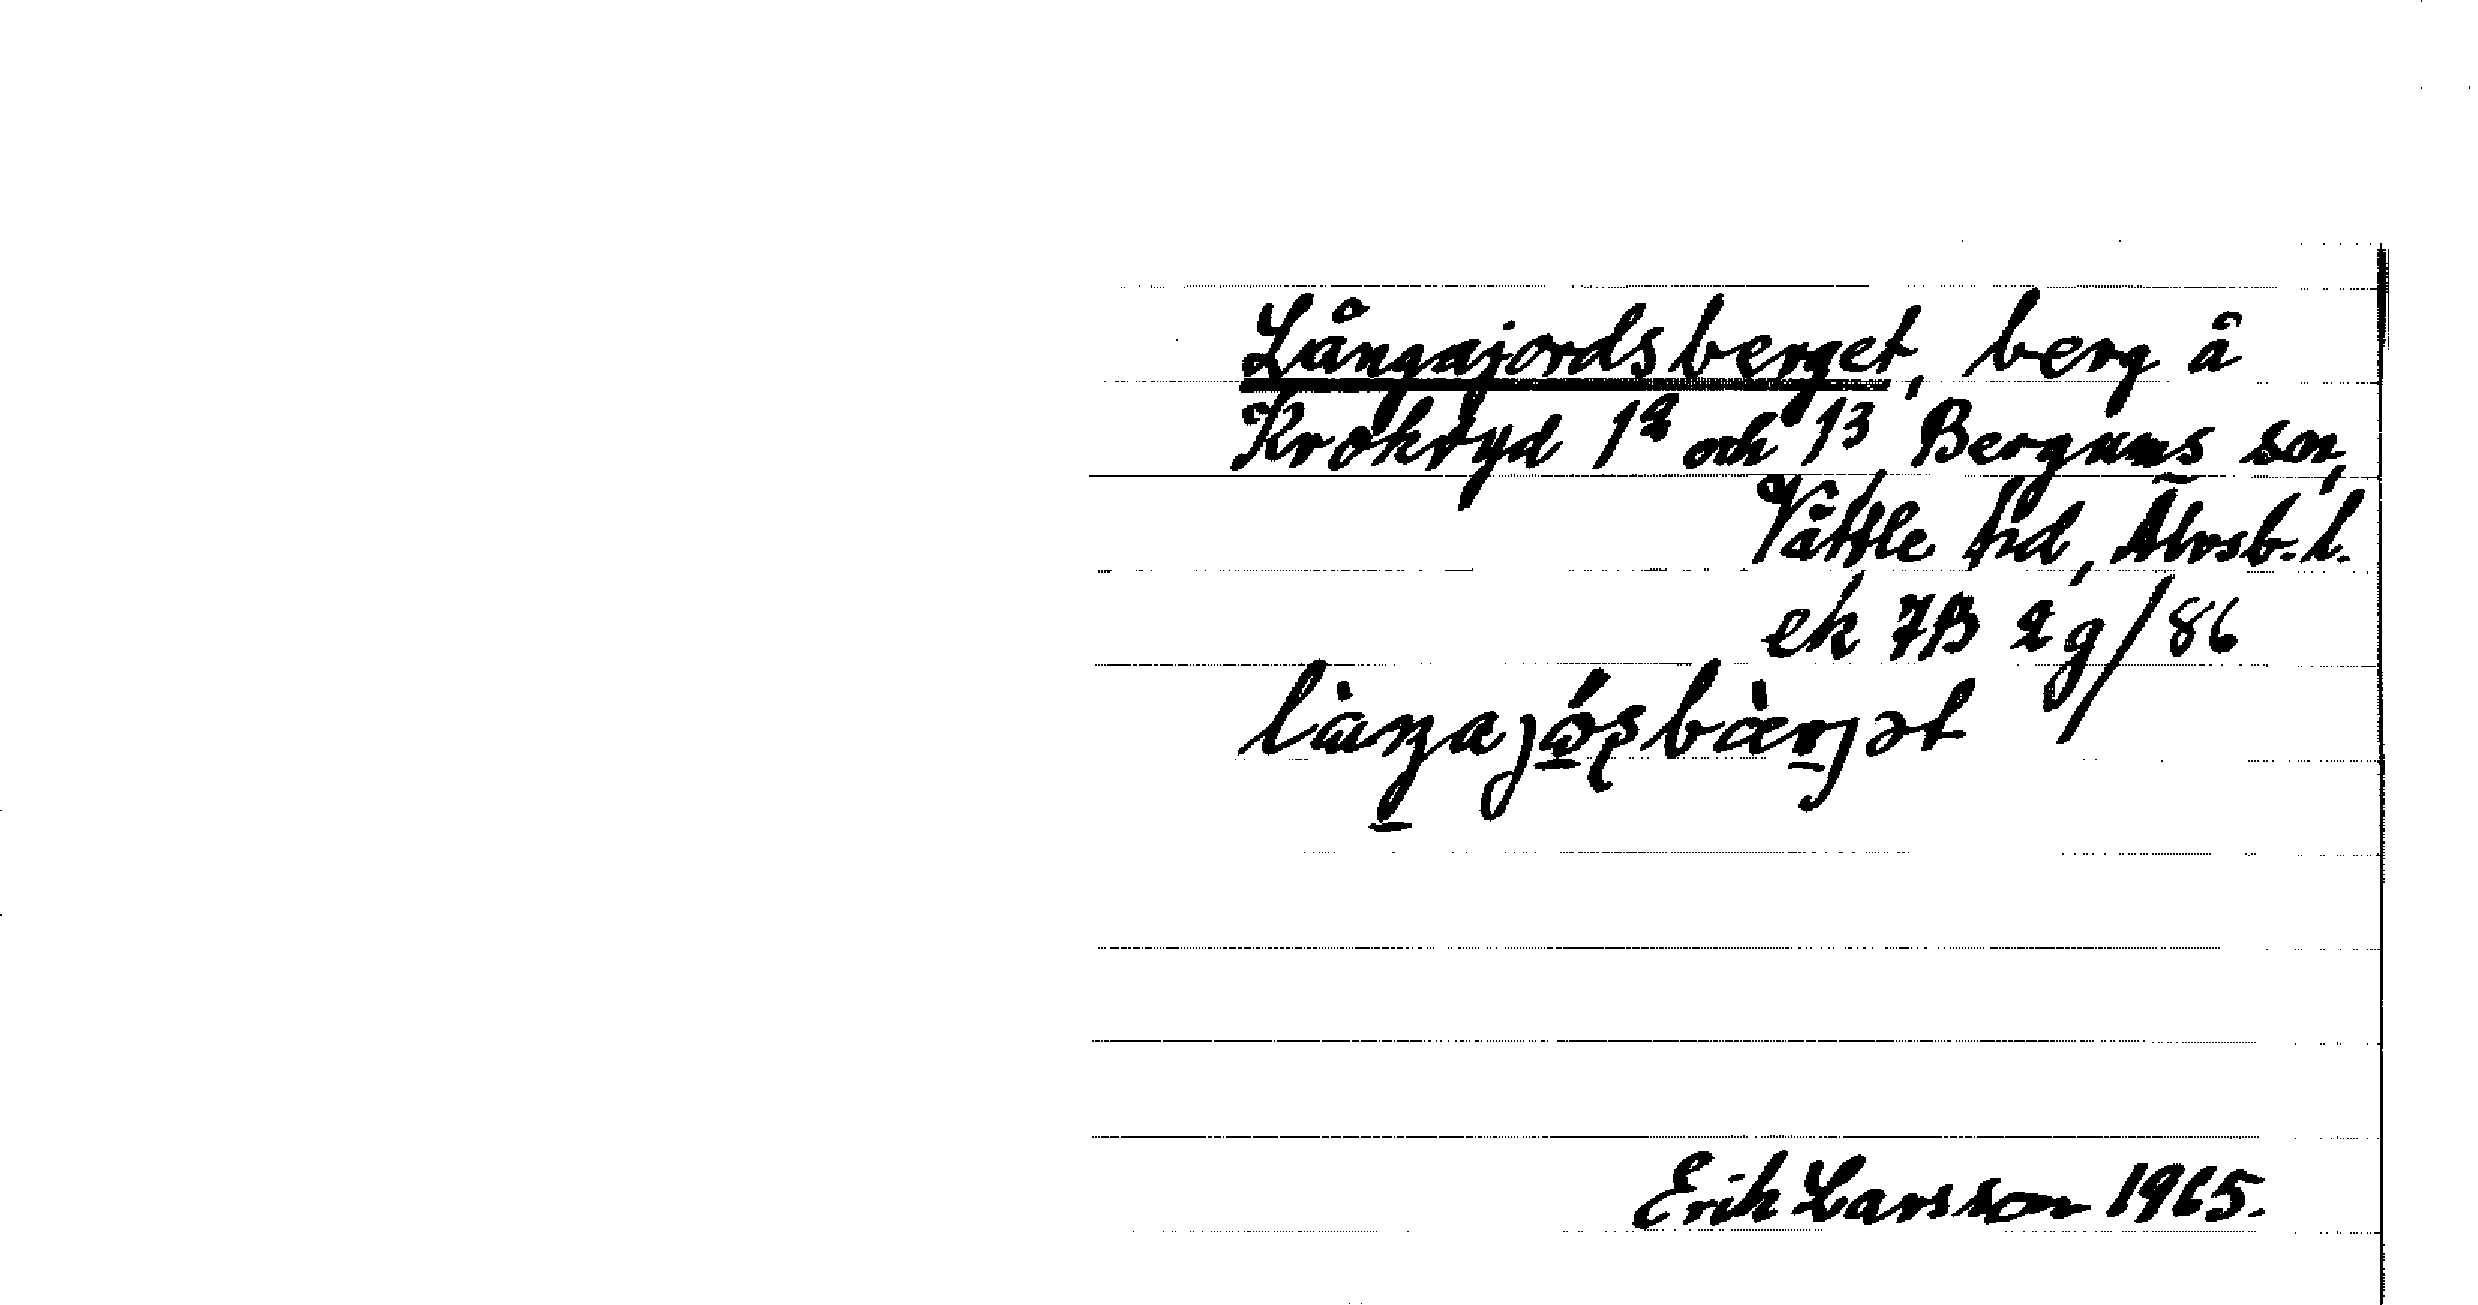 Långajordsberget, berg å
Krokryd 1² och 1³ Bergums sn,
Vättle hd, Älvsb. l.
ek 7B 2g/86
Erik Larsson 1965.